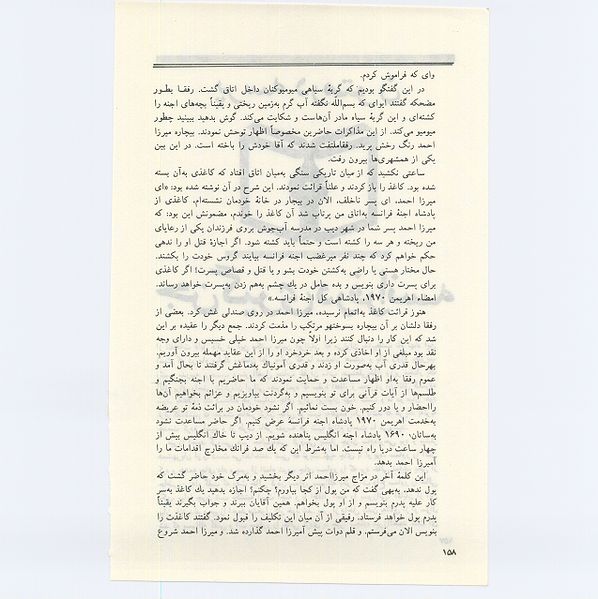 وای که فراموش کردم.
در این گفتگو بودیم که گربهٔ سیاهی میومیوکنان داخل اتاق گشت. رفقا بطور
مضحکه گفتند ایوای که بسم‌الله نگفته آب گرم به‌زمین ریختی و یقیناً بچه‌های اجنه را
کشته‌ای و این گربهٔ سیاه مادر آن‌هاست و شکایت می‌کند. گوش بدهید ببینید چطور
میومیو می‌کند. از این مذاکرات حاضرین مخصوصاً اظهار توحش نمودند. بیچاره میرزا
احمد رنگ رخش پرید. رفقا ملتفت شدند که آقا خودش را باخته است. در این بین
یکی از همشهری‌ها بیرون رفت.
ساعتی نکشید که از میان تاریکی سنگی به‌میان اتاق افتاد که کاغذی به‌آن بسته
شده بود. کاغذ را باز کردند و علناً قرائت نمودند. این شرح در آن نوشته شده بود: «ای
میرزا احمد، ای پسر ناخلف، الان در بیجار در خانهٔ خودمان نشسته‌ام. کاغذی از
پادشاه اجنهٔ فرانسه به‌اتاق من پرتاب شد آن کاغذ را خوندم، مضمونش این بود: که
میرزا احمد پسر شما در شهر دیپ در مدرسه آب‌جوش بروی فرزندان یکی از رعایای
من ریخته و هر سه را کشته است و حتماً باید کشته شود. اگر اجازهٔ قتل او را ندهی
حکم خواهم کرد که چند نفر میرغضب اجنه فرانسه بیایند گروس خودت را بکشند.
حال مختار هستی یا راضی به‌کشتن خودت بشو و یا قتل و قصاص پسرت! اگر کاغذی
برای پسرت داری بنویس و بده حامل در یك چشم به‌هم زدن به‌پسرت خواهد رساند.
امضاء اهریمن ۱۹۷۰، پادشاهی کل اجنهٔ فرانسه.»
هنوز قرائت کاغذ به‌اتمام نرسیده، میرزا احمد در روی صندلی غش کرد. بعضی از
رفقا دلشان بر آن بیچاره بسوخت و مرتکب را مذمت کردند. جمع دیگر را عقیده بر این
شد که این کار را دنبال کنند زیرا اولاً چون میرزا احمد خیلی خسیس و دارای وجه
نقد بود مبلغی از او اخاذی کرده و بعد خرد خرد او را از این عقاید مهمله بیرون آوریم.
بهرحال قدری آب به‌صورت او زدند و قدری آمونیاك به‌دماغش گرفتند تا بحال آمد و
عموم رفقا به‌او اظهار مساعدت و حمایت نمودند که ما حاضریم با اجنه بجنگیم و
طلسم‌ها از آیات قرآنی برای تو بنویسیم و به‌گردنت بیاویزیم و عزائم بخواهیم آن‌ها
را احضار و یا دور کنیم. خون بست نمائیم. اگر نشود خودمان در برائت ذمهٔ تو عریضه
به‌خدمت اهریمن ۱۹۷۰ پادشاه اجنه فرانسه عرض کنیم. اگر حاضر مساعدت نشود
۱۶۹۰ پادشاه اجنه انگلیس پناهنده شویم. از دیپ تا خاك انگلیس بیش از
چهار ساعت دریا راه نیست. اما به‌شرط این که یك صد فرانك مخارج اقدامات ما را
آمیرزا احمد بدهد.
این کلمهٔ آخر در مزاج میرزااحمد اثر دیگر بخشید و به‌مرگ خود حاضر گشت که
پول ندهد. به‌بهی گفت که من پول از کجا بیاورم؟ چکنم؟ اجازه بدهید یك کاغذ به‌سر
کار علیه پدرم بنویسم و از او پول بخواهم. همین آقایان ببرند و جواب بگیرند یقیناً
پدرم پول خواهد فرستاد. رفیقی از آن میان این تکلیف را قبول نمود. گفتند کاغذت را
بنویس الان می‌فرستم. و قلم دوات پیش آمیرزا احمد گذارده شد. و میرزا احمد شروع
۱۵۸